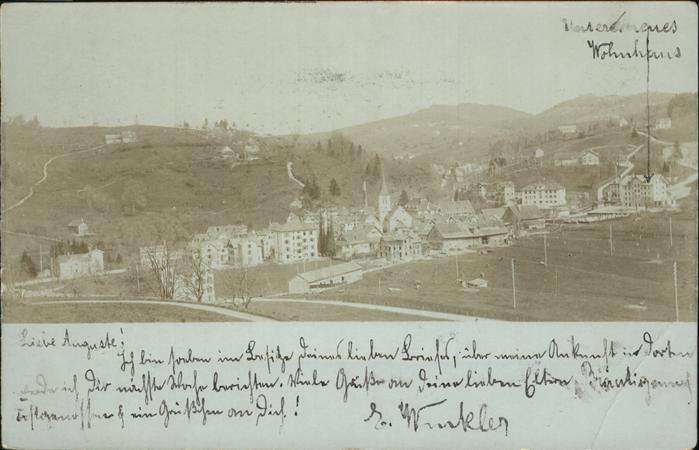 Unser neues
Wohnhaus
Liebe Auguste!
Ich bin soeben im Besitze deines lieben Briefes, über meine Ankunft in dorten
werde ich Dir nächste Woche berichten. Viele Grüße an deine lieben Eltern,
& ein Grüßchen an Dich!
E. Winkler